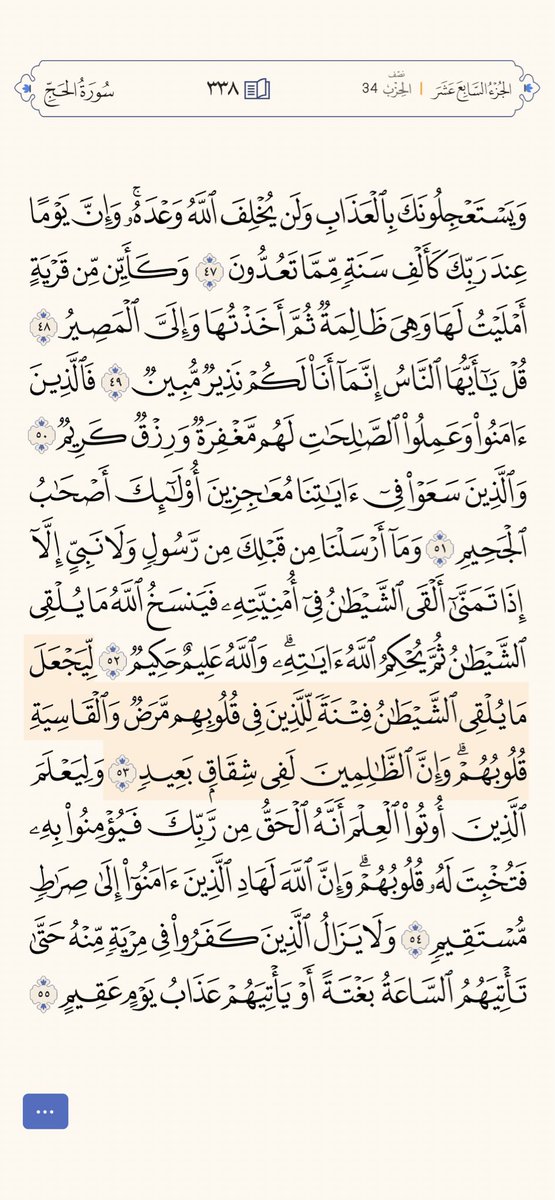 سُورَةُ الحَجِّ
٣٣٨
نصف
الجُزْءُ السَّابِعَ عَشَرَ | الحِزْبُ 34
وَيَسۡتَعۡجِلُونَكَ بِٱلۡعَذَابِ وَلَن يُخۡلِفَ ٱللَّهُ وَعۡدَهُۥۚ وَإِنَّ يَوۡمًا
عِندَ رَبِّكَ كَأَلۡفِ سَنَةٖ مِّمَّا تَعُدُّونَ ٤٧ وَكَأَيِّن مِّن قَرۡيَةٍ
أَمۡلَيۡتُ لَهَا وَهِيَ ظَالِمَةٞ ثُمَّ أَخَذۡتُهَا وَإِلَيَّ ٱلۡمَصِيرُ ٤٨
قُلۡ يَٰٓأَيُّهَا ٱلنَّاسُ إِنَّمَآ أَنَا۠ لَكُمۡ نَذِيرٞ مُّبِينٞ ٤٩ فَٱلَّذِينَ
ءَامَنُواْ وَعَمِلُواْ ٱلصَّٰلِحَٰتِ لَهُم مَّغۡفِرَةٞ وَرِزۡقٞ كَرِيمٞ ٥٠
وَٱلَّذِينَ سَعَوۡاْ فِيٓ ءَايَٰتِنَا مُعَٰجِزِينَ أُوْلَٰٓئِكَ أَصۡحَٰبُ
ٱلۡجَحِيمِ ٥١ وَمَآ أَرۡسَلۡنَا مِن قَبۡلِكَ مِن رَّسُولٖ وَلَا نَبِيٍّ إِلَّآ
إِذَا تَمَنَّىٰٓ أَلۡقَى ٱلشَّيۡطَٰنُ فِيٓ أُمۡنِيَّتِهِۦ فَيَنسَخُ ٱللَّهُ مَا يُلۡقِي
ٱلشَّيۡطَٰنُ ثُمَّ يُحۡكِمُ ٱللَّهُ ءَايَٰتِهِۦۗ وَٱللَّهُ عَلِيمٌ حَكِيمٞ ٥٢ لِّيَجۡعَلَ
مَا يُلۡقِي ٱلشَّيۡطَٰنُ فِتۡنَةٗ لِّلَّذِينَ فِي قُلُوبِهِم مَّرَضٞ وَٱلۡقَاسِيَةِ
قُلُوبُهُمۡۗ وَإِنَّ ٱلظَّٰلِمِينَ لَفِي شِقَاقِۭ بَعِيدٖ ٥٣ وَلِيَعۡلَمَ
ٱلَّذِينَ أُوتُواْ ٱلۡعِلۡمَ أَنَّهُ ٱلۡحَقُّ مِن رَّبِّكَ فَيُؤۡمِنُواْ بِهِۦ
فَتُخۡبِتَ لَهُۥ قُلُوبُهُمۡۗ وَإِنَّ ٱللَّهَ لَهَادِ ٱلَّذِينَ ءَامَنُوٓاْ إِلَىٰ صِرَٰطٖ
مُّسۡتَقِيمٖ ٥٤ وَلَا يَزَالُ ٱلَّذِينَ كَفَرُواْ فِي مِرۡيَةٖ مِّنۡهُ حَتَّىٰ
تَأۡتِيَهُمُ ٱلسَّاعَةُ بَغۡتَةً أَوۡ يَأۡتِيَهُمۡ عَذَابُ يَوۡمٍ عَقِيمٍ ٥٥